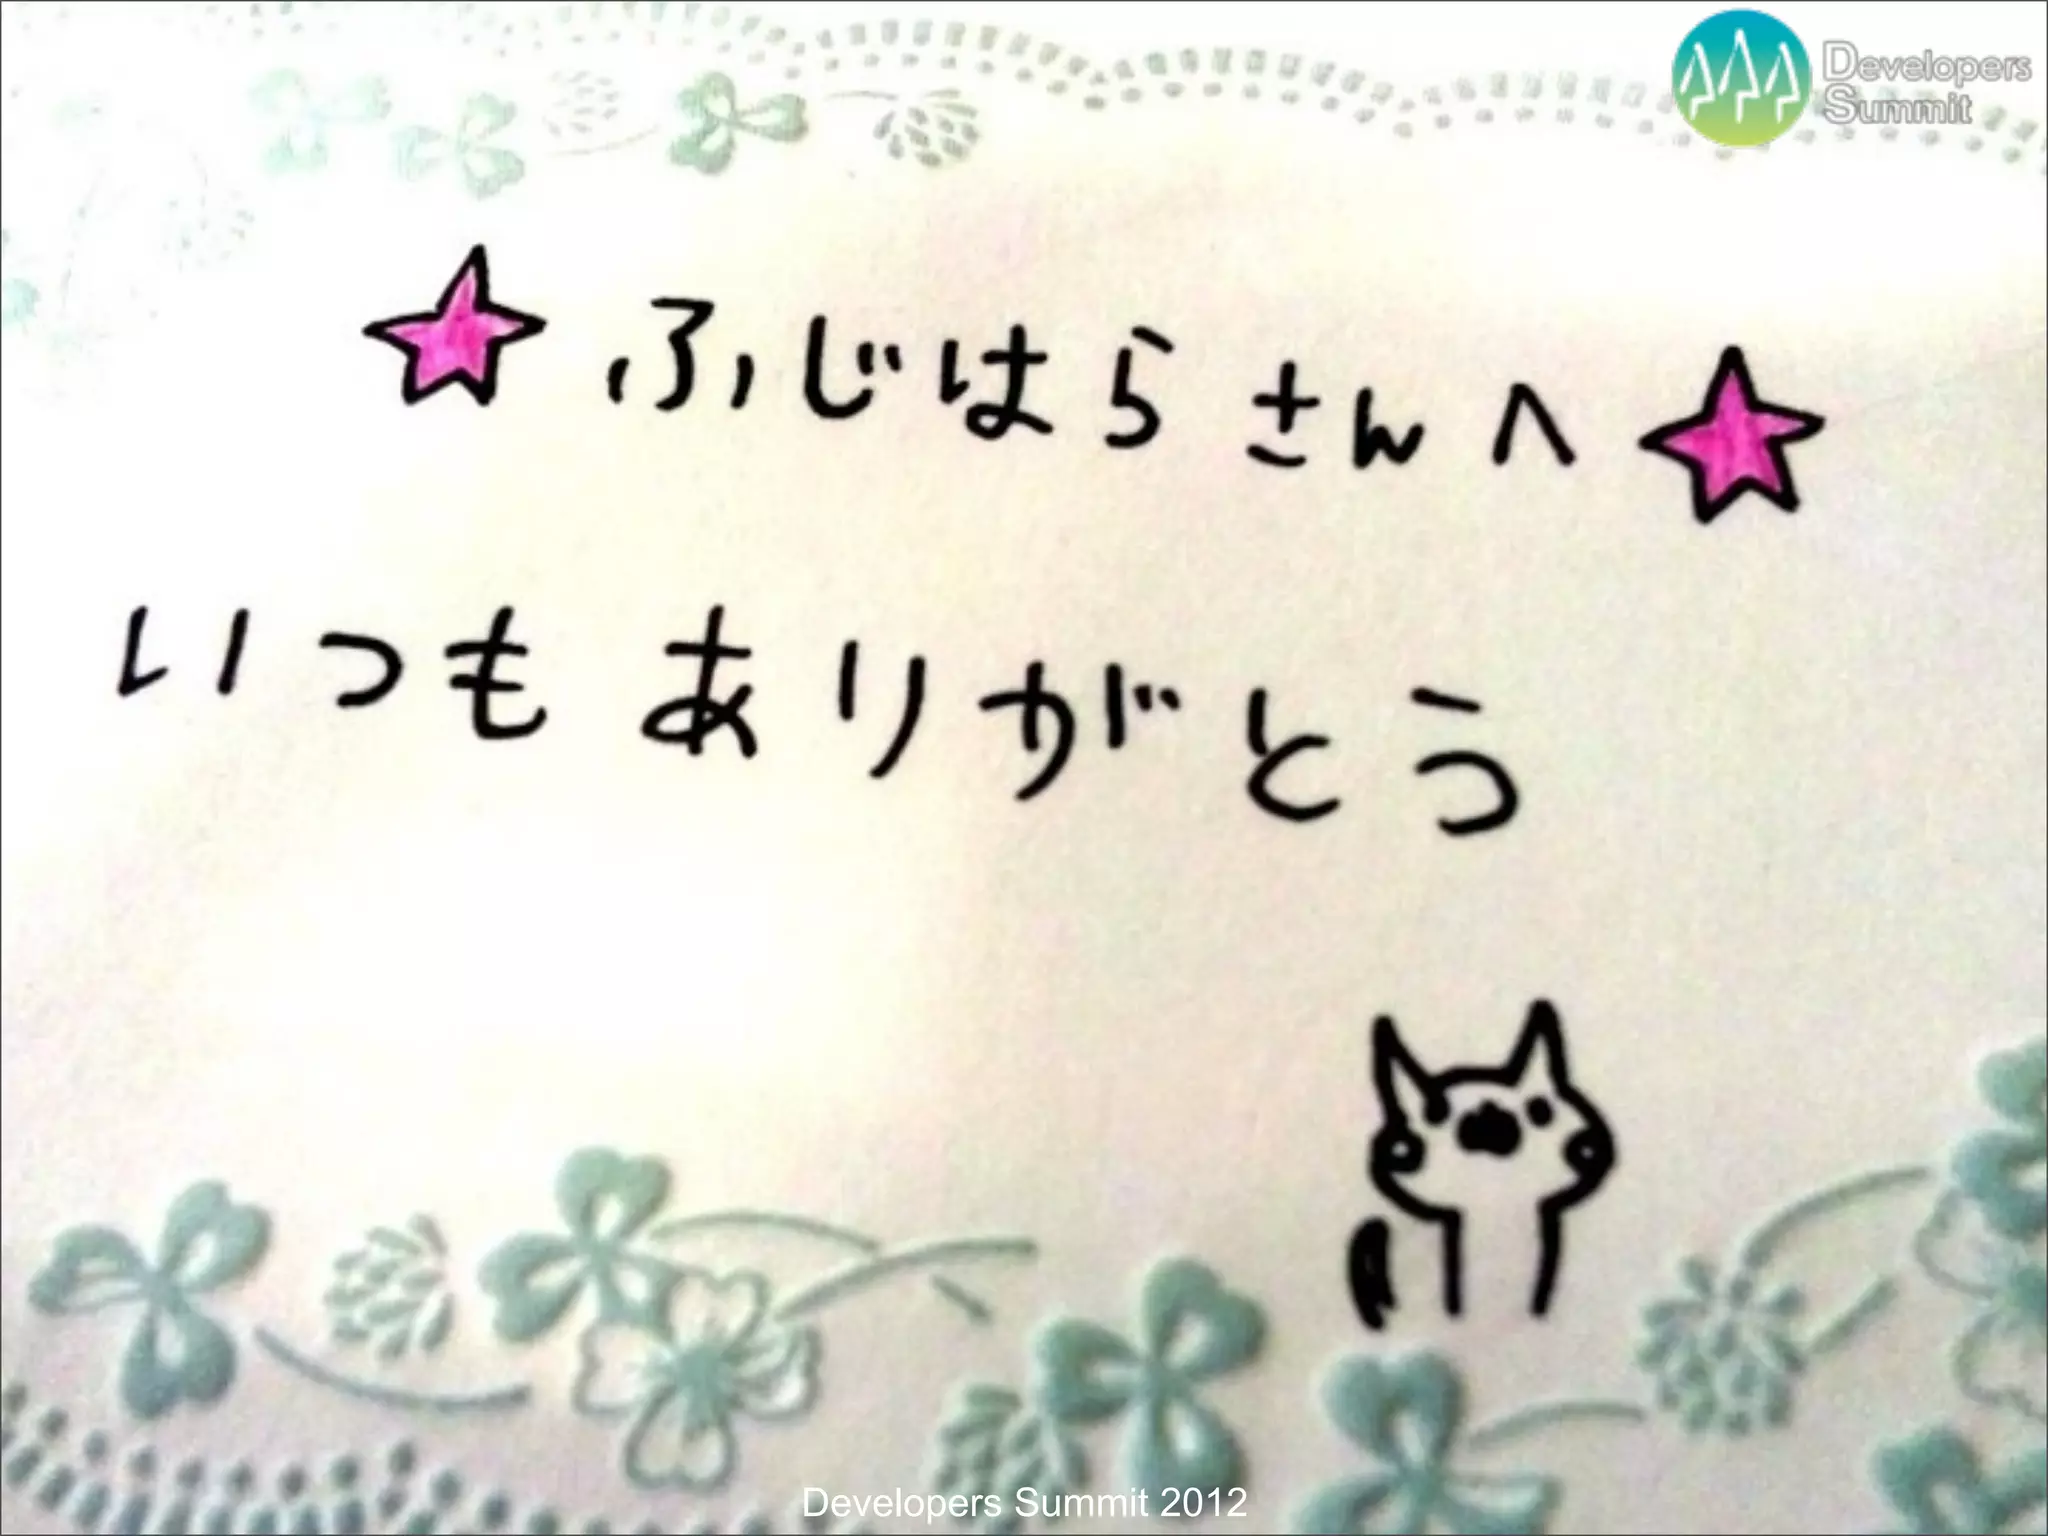 Developers
Summit
★ふじはらさんへ★
いつも ありがとう
Developers Summit 2012